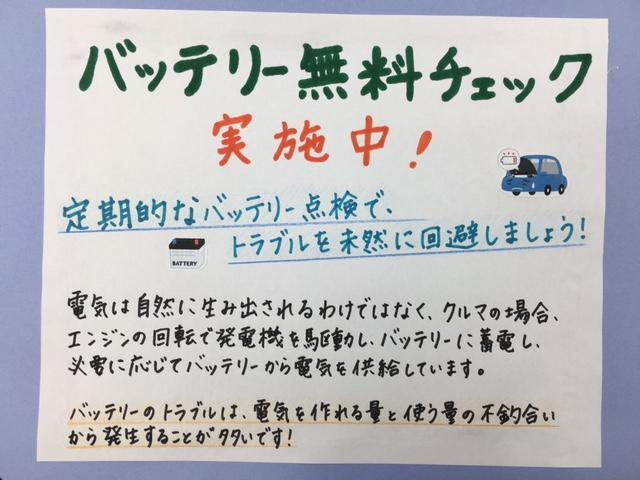 バッテリー無料チェック
実施中!
定期的なバッテリー点検で、
トラブルを未然に回避しましょう!
BATTERY
電気は自然に生み出されるわけではなく、クルマの場合、
エンジンの回転で発電機を駆動し、バッテリーに蓄電し、
必要に応じてバッテリーから電気を供給しています。
バッテリーのトラブルは、電気を作れる量と使う量の不釣合い
から発生することが多いです!